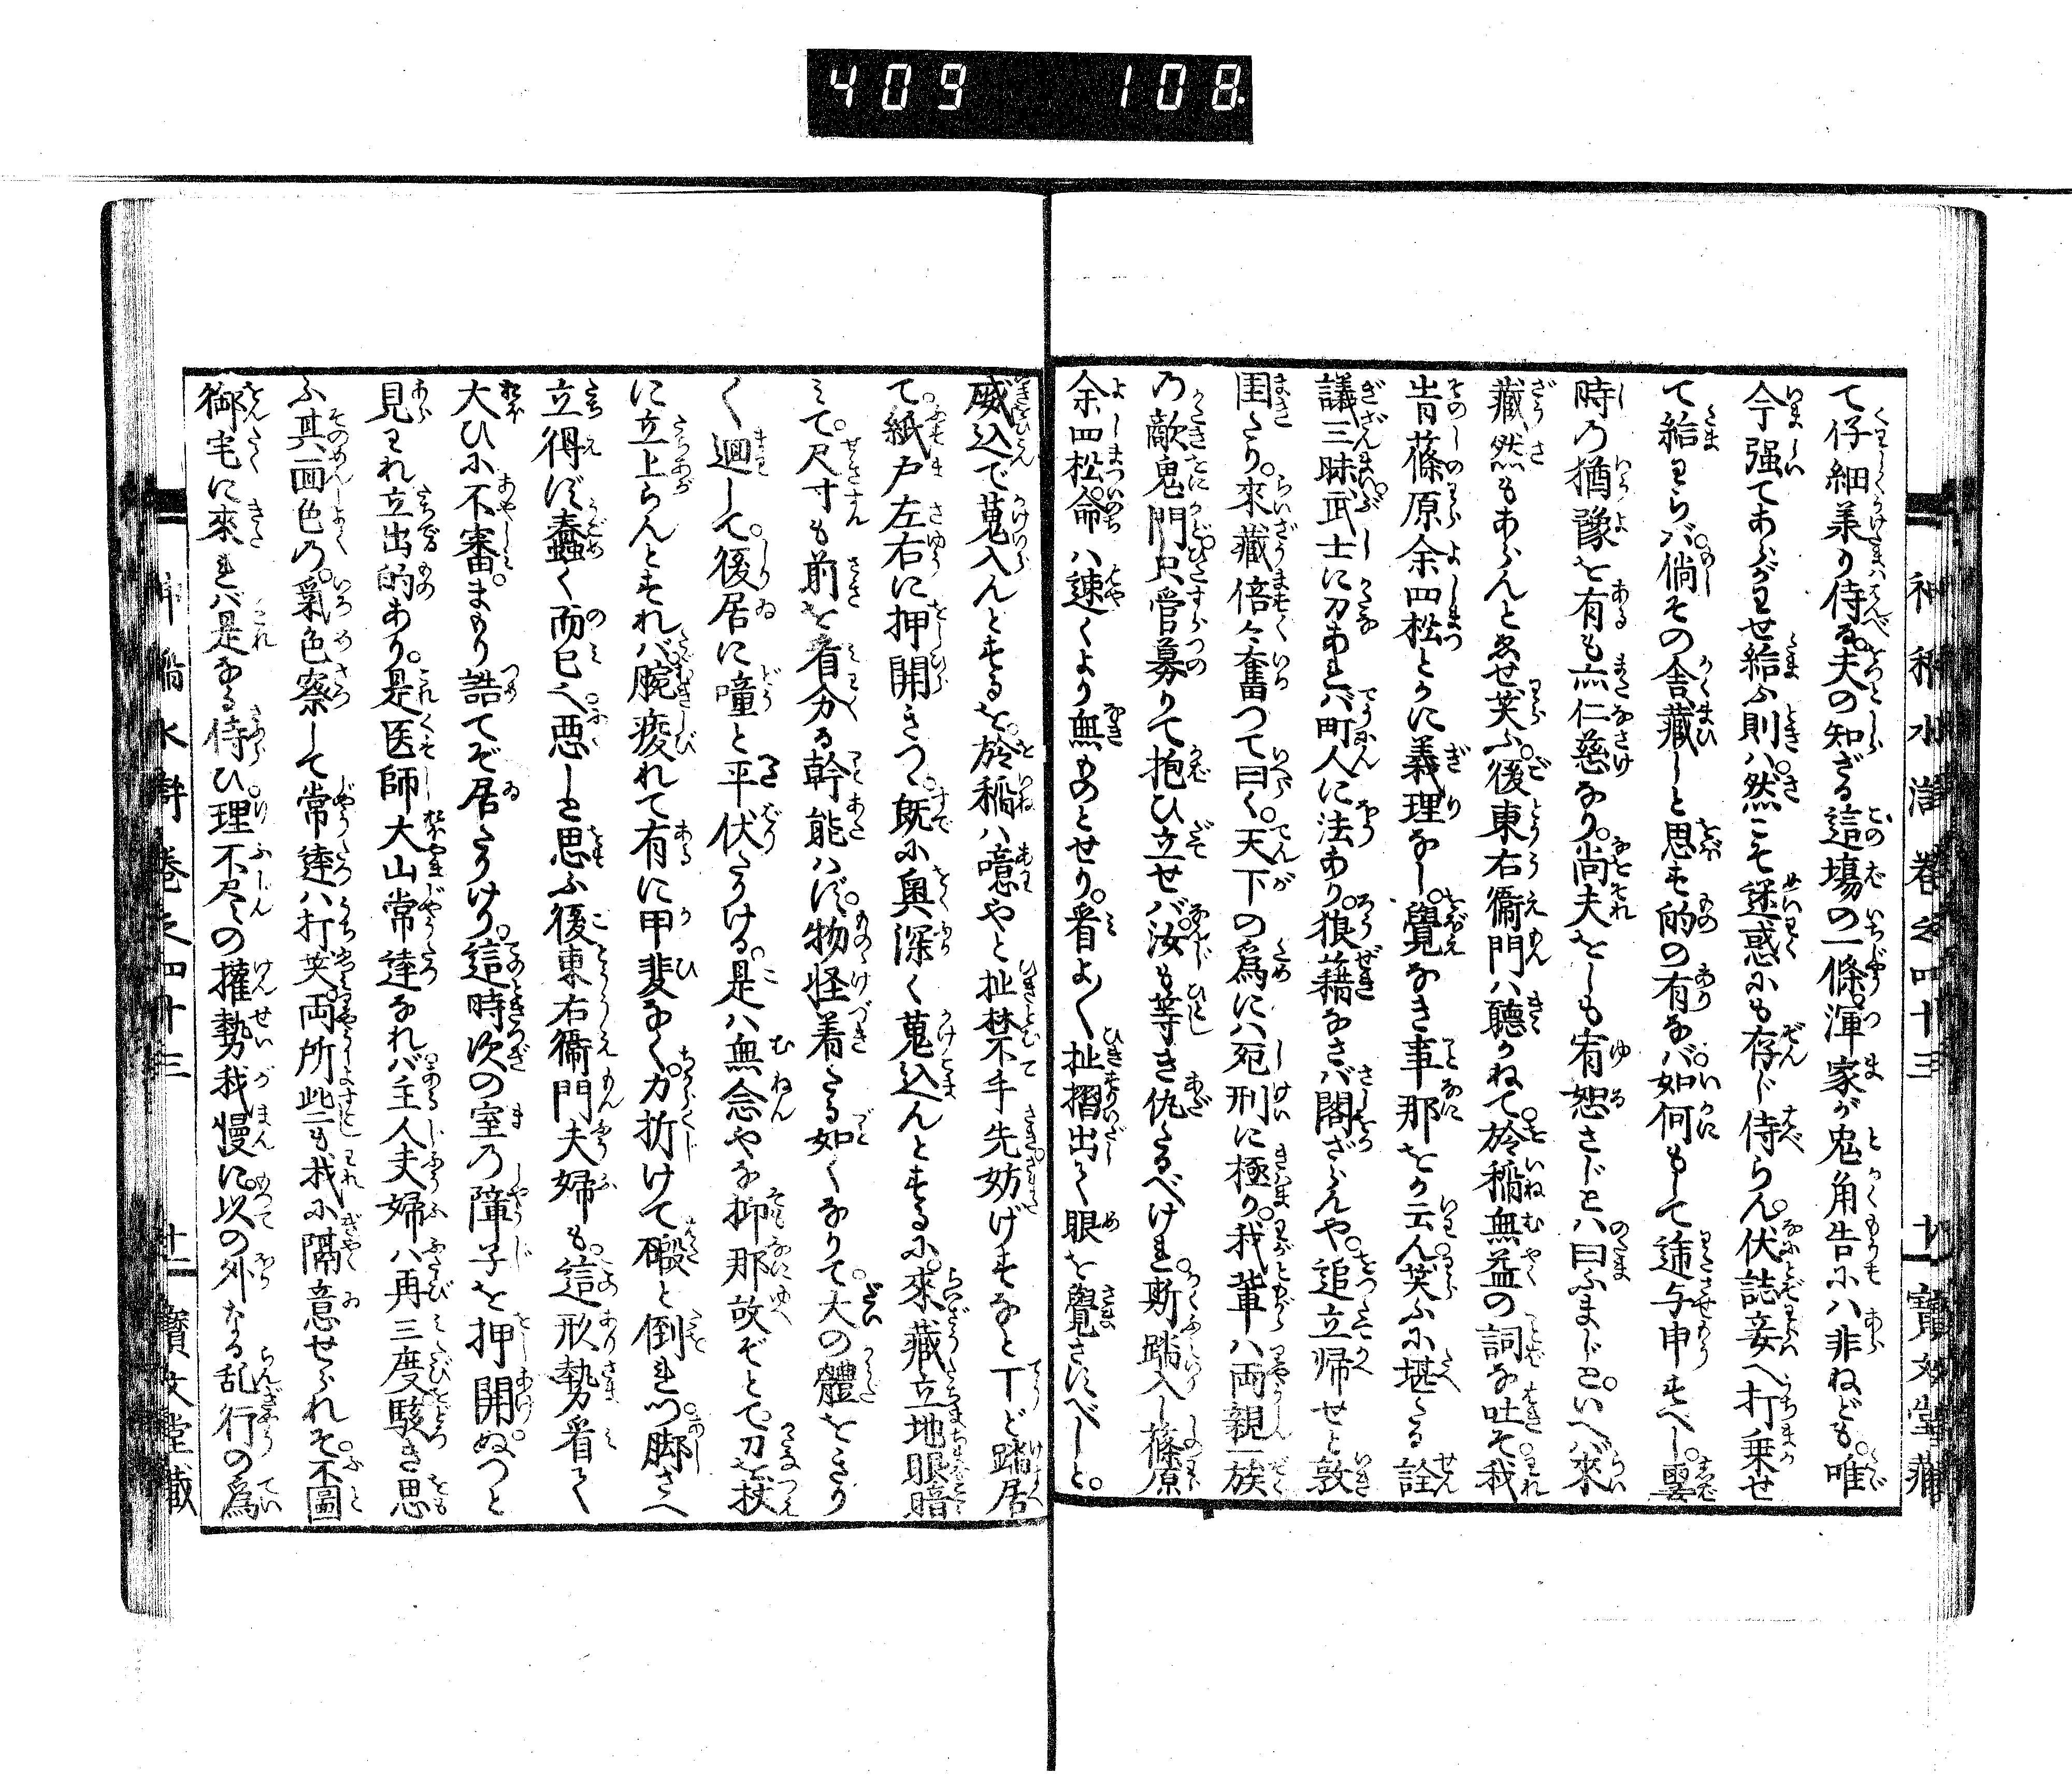 409 108
神稲水滸巻之四十三 十 寳文堂藏
て仔細美り侍る。夫の知ざる這場の一條。渾家が兎角告にハ非ねども。唯
今强てあらがはせ給ふ則ハ。然こそ迷惑にも存じ侍らん。伏誌妾へ打乗せ
て給はらバ。倘その舎藏しと思す的の有なバ。如何もして逓与申すべし。霎
時の猶豫を有も亦仁慈なり。尚夫をしも宥恕さじとハ曰ふまじと。いへバ來
藏然もあらんとゑせ笑ふ。後東右衞門ハ聽かねて。於稲無益の詞な吐そ。我
肯篠原余四松とかに義理なし。覺なき事那をか云ん。笑ふに堪たる詮
議三昧。武士に刀あれバ町人に法あり。狼藉なさバ閣ざらんや。追立帰せと敦
圉たり。來藏倍々奮つて曰く。天下の爲にハ死刑に極り。我輩ハ両親一族
の敵。鬼門只管募りて抱ひ立せバ。汝も等き仇たるべけれ。斯踏入し篠原
余四松。命ハ速くより無ものとせり。看よ〳〵扯摺出て眼を覺さすべしと。
威込で蒐入んとするを。於稲ハ噫やと扯禁。不手先妨げすなと丁ど踏居
て。紙戸左右に押開きつゝ。既に奥深く蒐込んとするに。來藏立地眼暗
みて。尺寸も前を看分る幹能ハず。物怪着たる如くなりて。大の體をきり
〳〵廻して。後居に噇と平伏たりける。是ハ無念やな抑那故ぞとて。刀を杖
に立上らんとすれバ。腕痿れて有に甲斐なく。力折けて礑と倒れつ。脚さへ
立得ず蠢く而已。へ悪しと思ふ後東右衞門夫婦も。這形勢看て
大ひに不審まり。詰てぞ居たりける。這時次の室の障子を押開。ぬつと
見はれ立出的あり。是医師大山常逹なれバ。主人夫婦ハ再三度駭き思
ふ。其面色の。氣色察して常逹ハ打笑。両所些も我に隔意せられそ。不圖
御宅に來れバ。是なる侍ひ理不尽の權勢我慢に。以の外なる乱行の爲
神稲水滸巻之四十三 十一 寳文堂藏